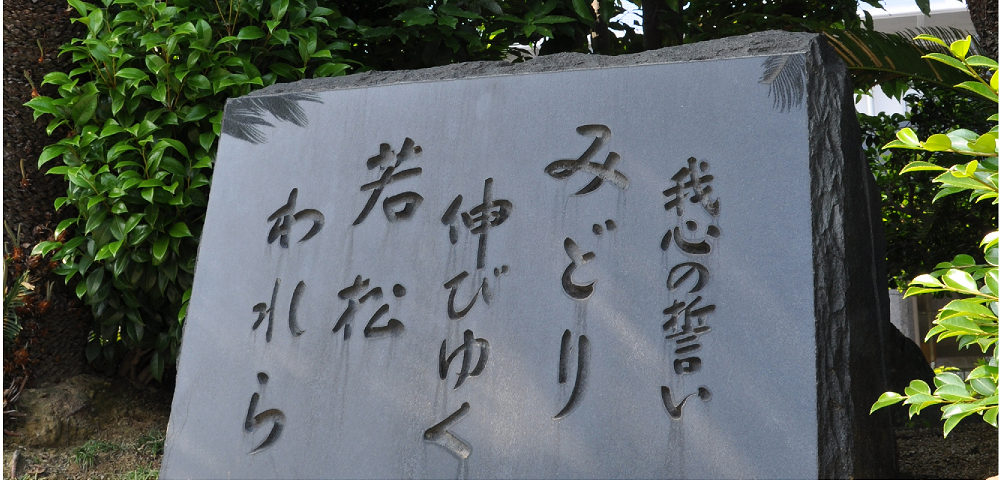 我心の誓い
みどり
伸びゆく
若松
われら